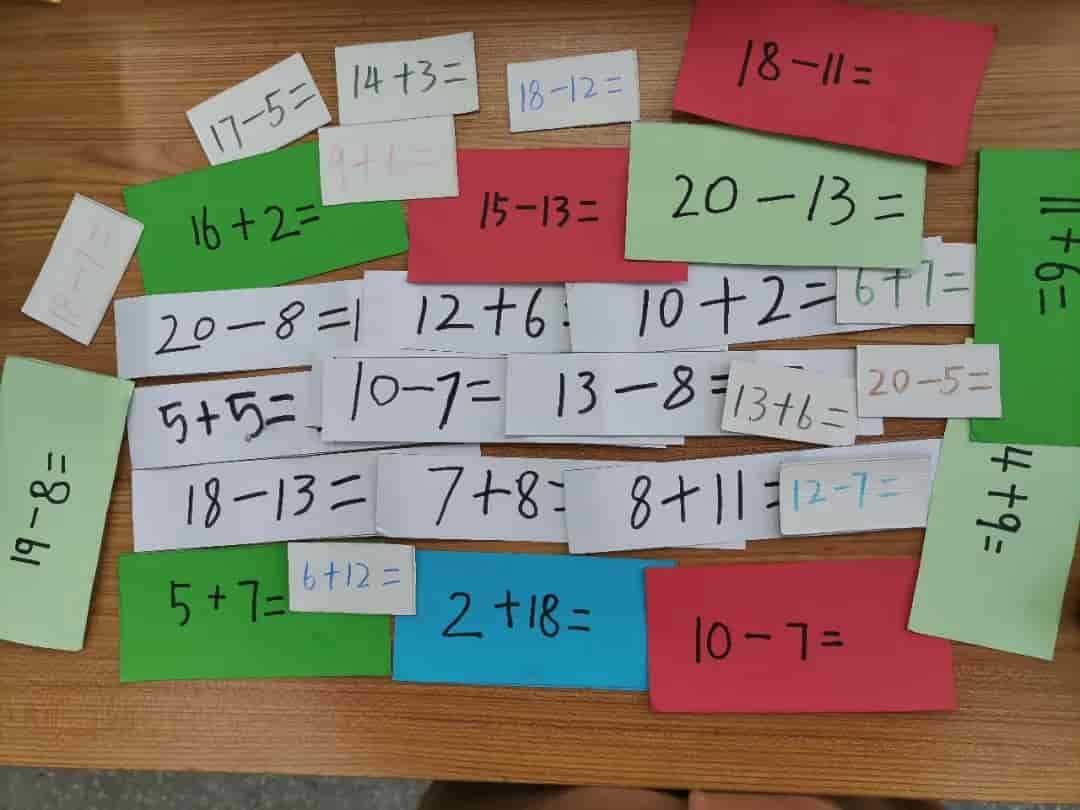 18-11=
14+3=
18-12=
17-5=
20-13=
15-13=
16+2=
11+9=
6+7=
10+2=
12+6
20-8=1
20-5=
13-8=
10-7=
5+5=
13+6=
12-7=
8+11=
7+8=
18-13=
19-8=
4+9=
6+12=
5+7=
2+18=
10-7=